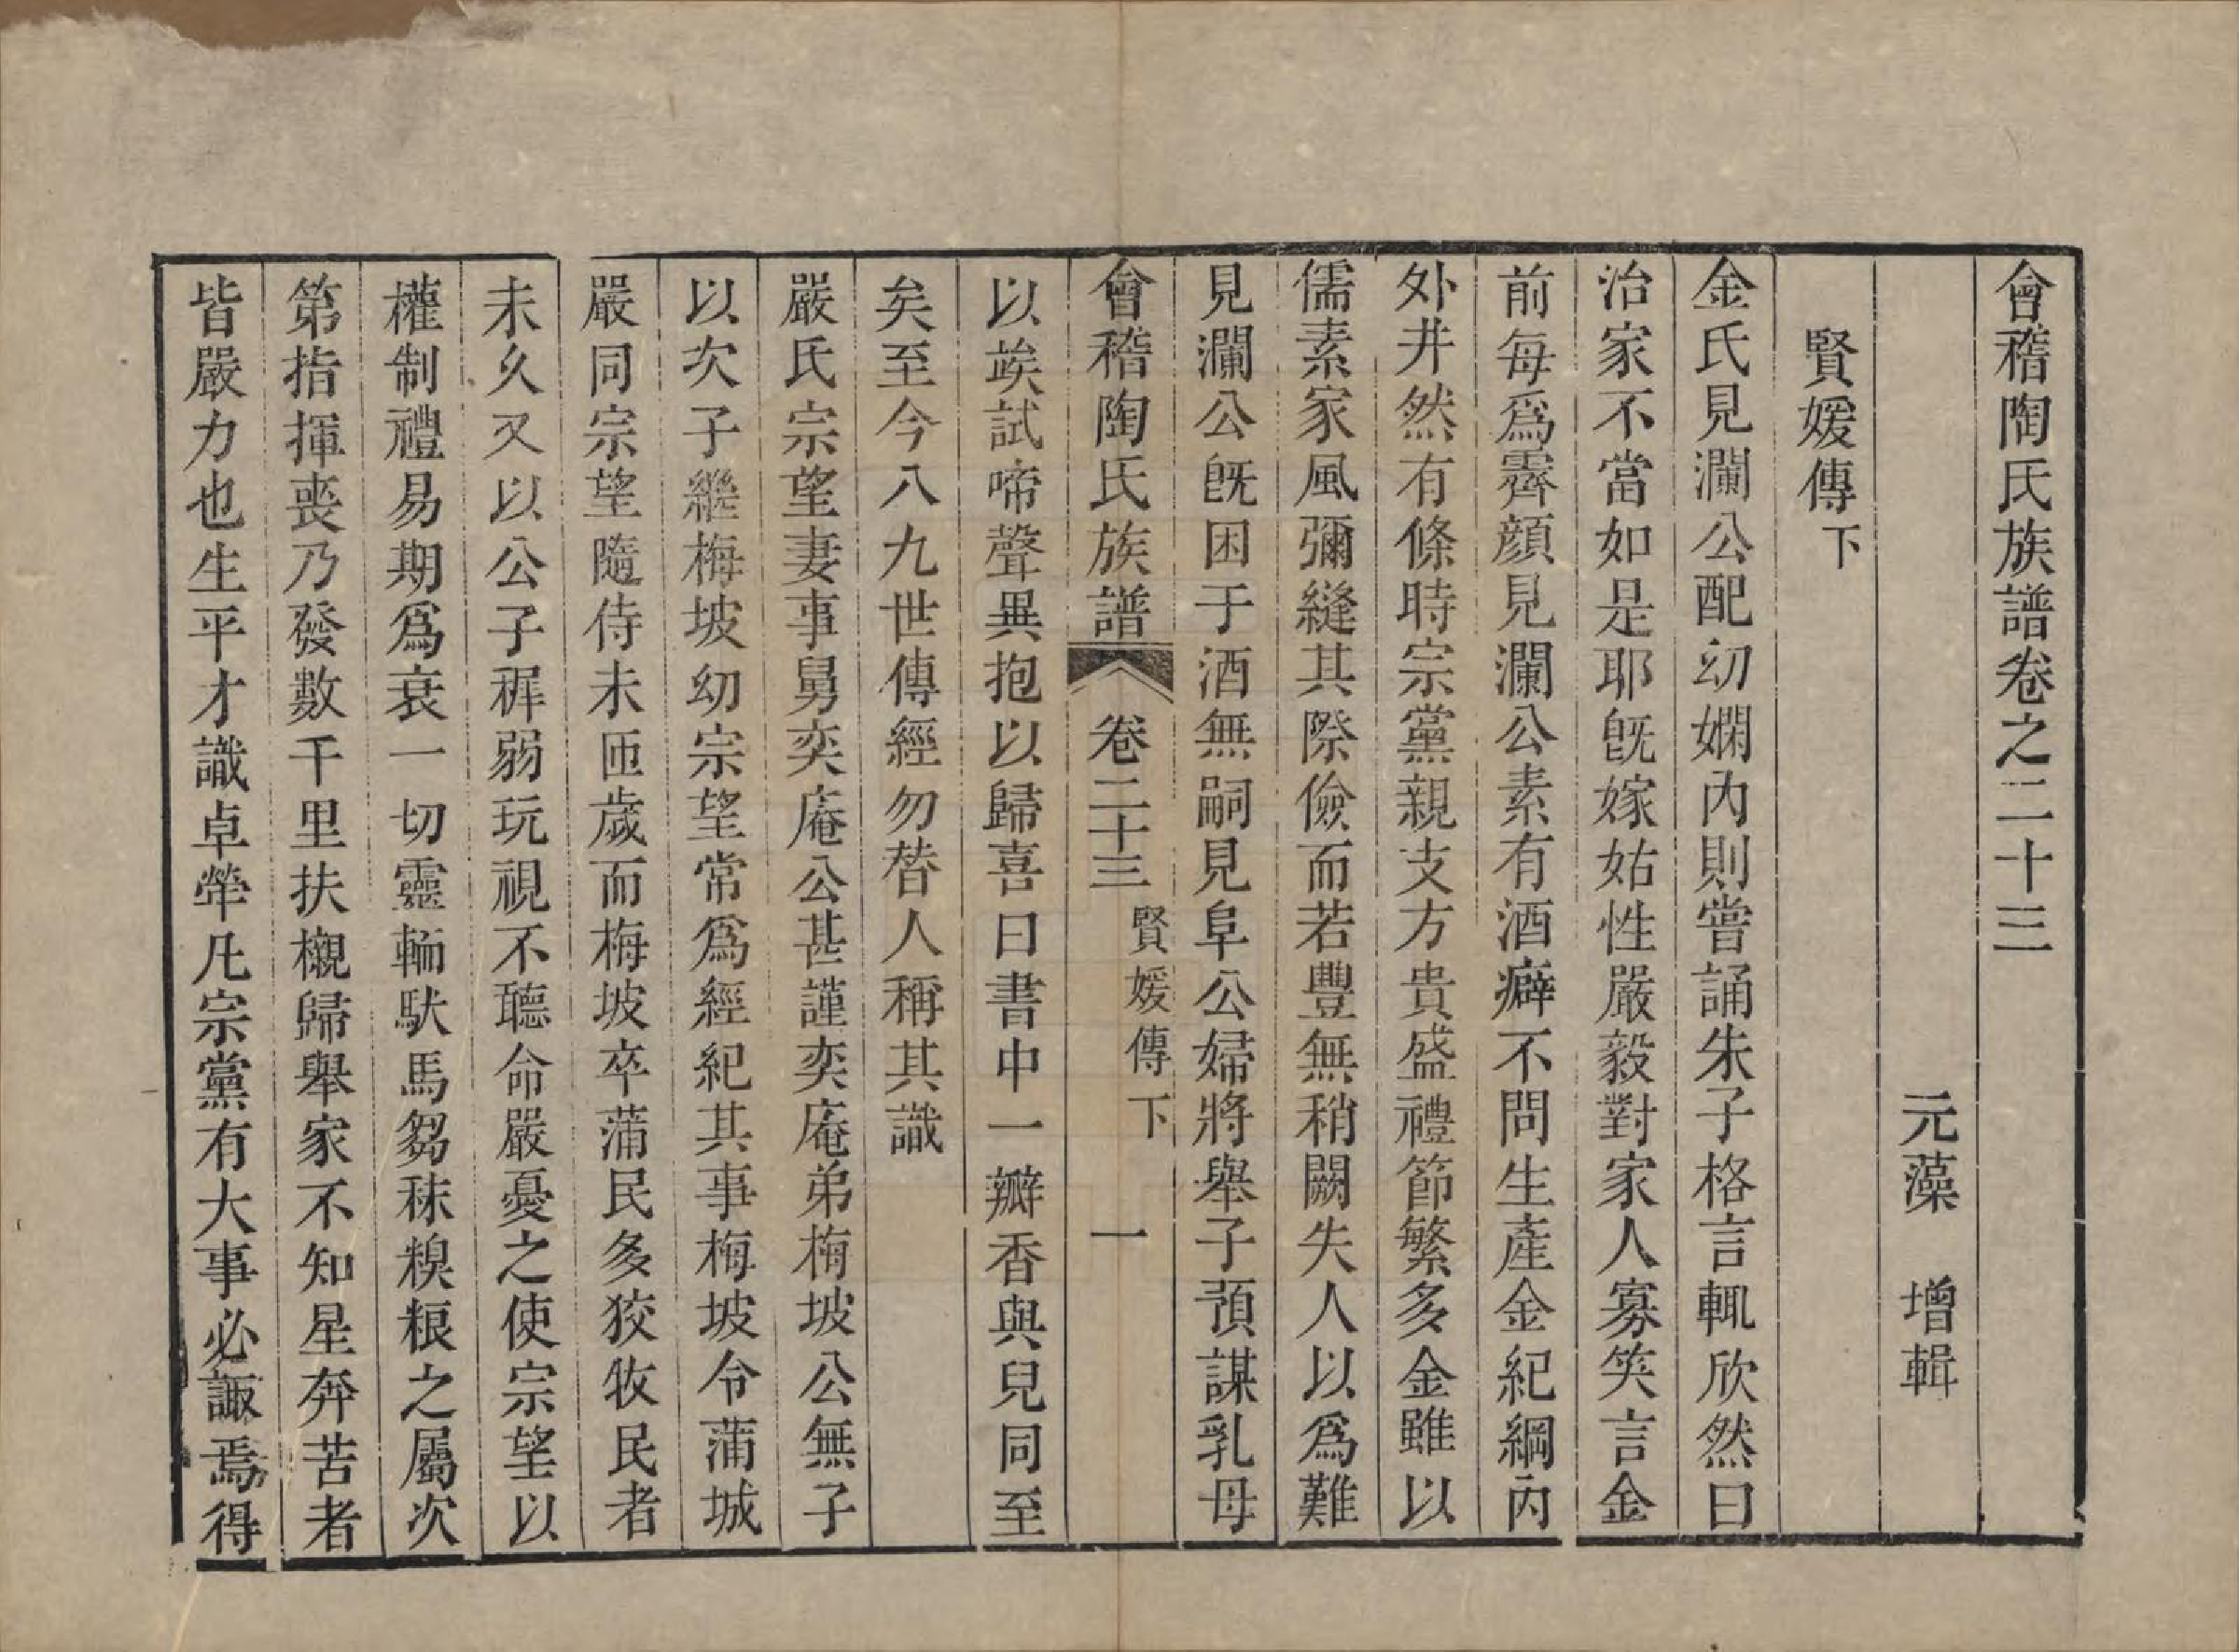 會稽陶氏族譜卷之二十三
元藻　增輯
賢媛傳下
金氏見瀾公配幼嫻內則嘗誦朱子格言輒欣然曰
治家不當如是耶旣嫁姑性嚴毅對家人寡笑言金
前每爲霽顏見瀾公素有酒癖不問生產金紀綱內
外井然有條時宗黨親支方貴盛禮節繁多金雖以
儒素家風彌縫其際儉而若豐無稍闕失人以爲難
見瀾公旣困于酒無嗣見阜公婦將舉子預謀乳母
會稽陶氏族譜　卷二十三　賢媛傳下　一
以竢試啼聲異抱以歸喜曰書中一瓣香與兒同至
矣至今八九世傳經勿替人稱其識
嚴氏宗望妻事舅奕庵公甚謹奕庵弟梅坡公無子
以次子繼梅坡幼宗望常爲經紀其事梅坡令蒲城
嚴同宗望隨侍未匝歲而梅坡卒蒲民多狡牧民者
未久又以公子穉弱玩視不聽命嚴憂之使宗望以
權制禮易期爲衰一切靈輀馱馬芻秣糗粻之屬次
第指揮喪乃發數千里扶櫬歸舉家不知星奔苦者
皆嚴力也生平才識卓犖凡宗黨有大事必諏焉得